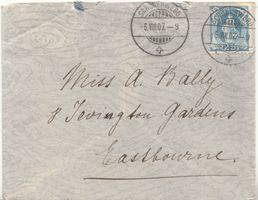 -5.VIII.07.-9
25
Miss A. Bally
8 Jevington Gardens
Eastbourne.